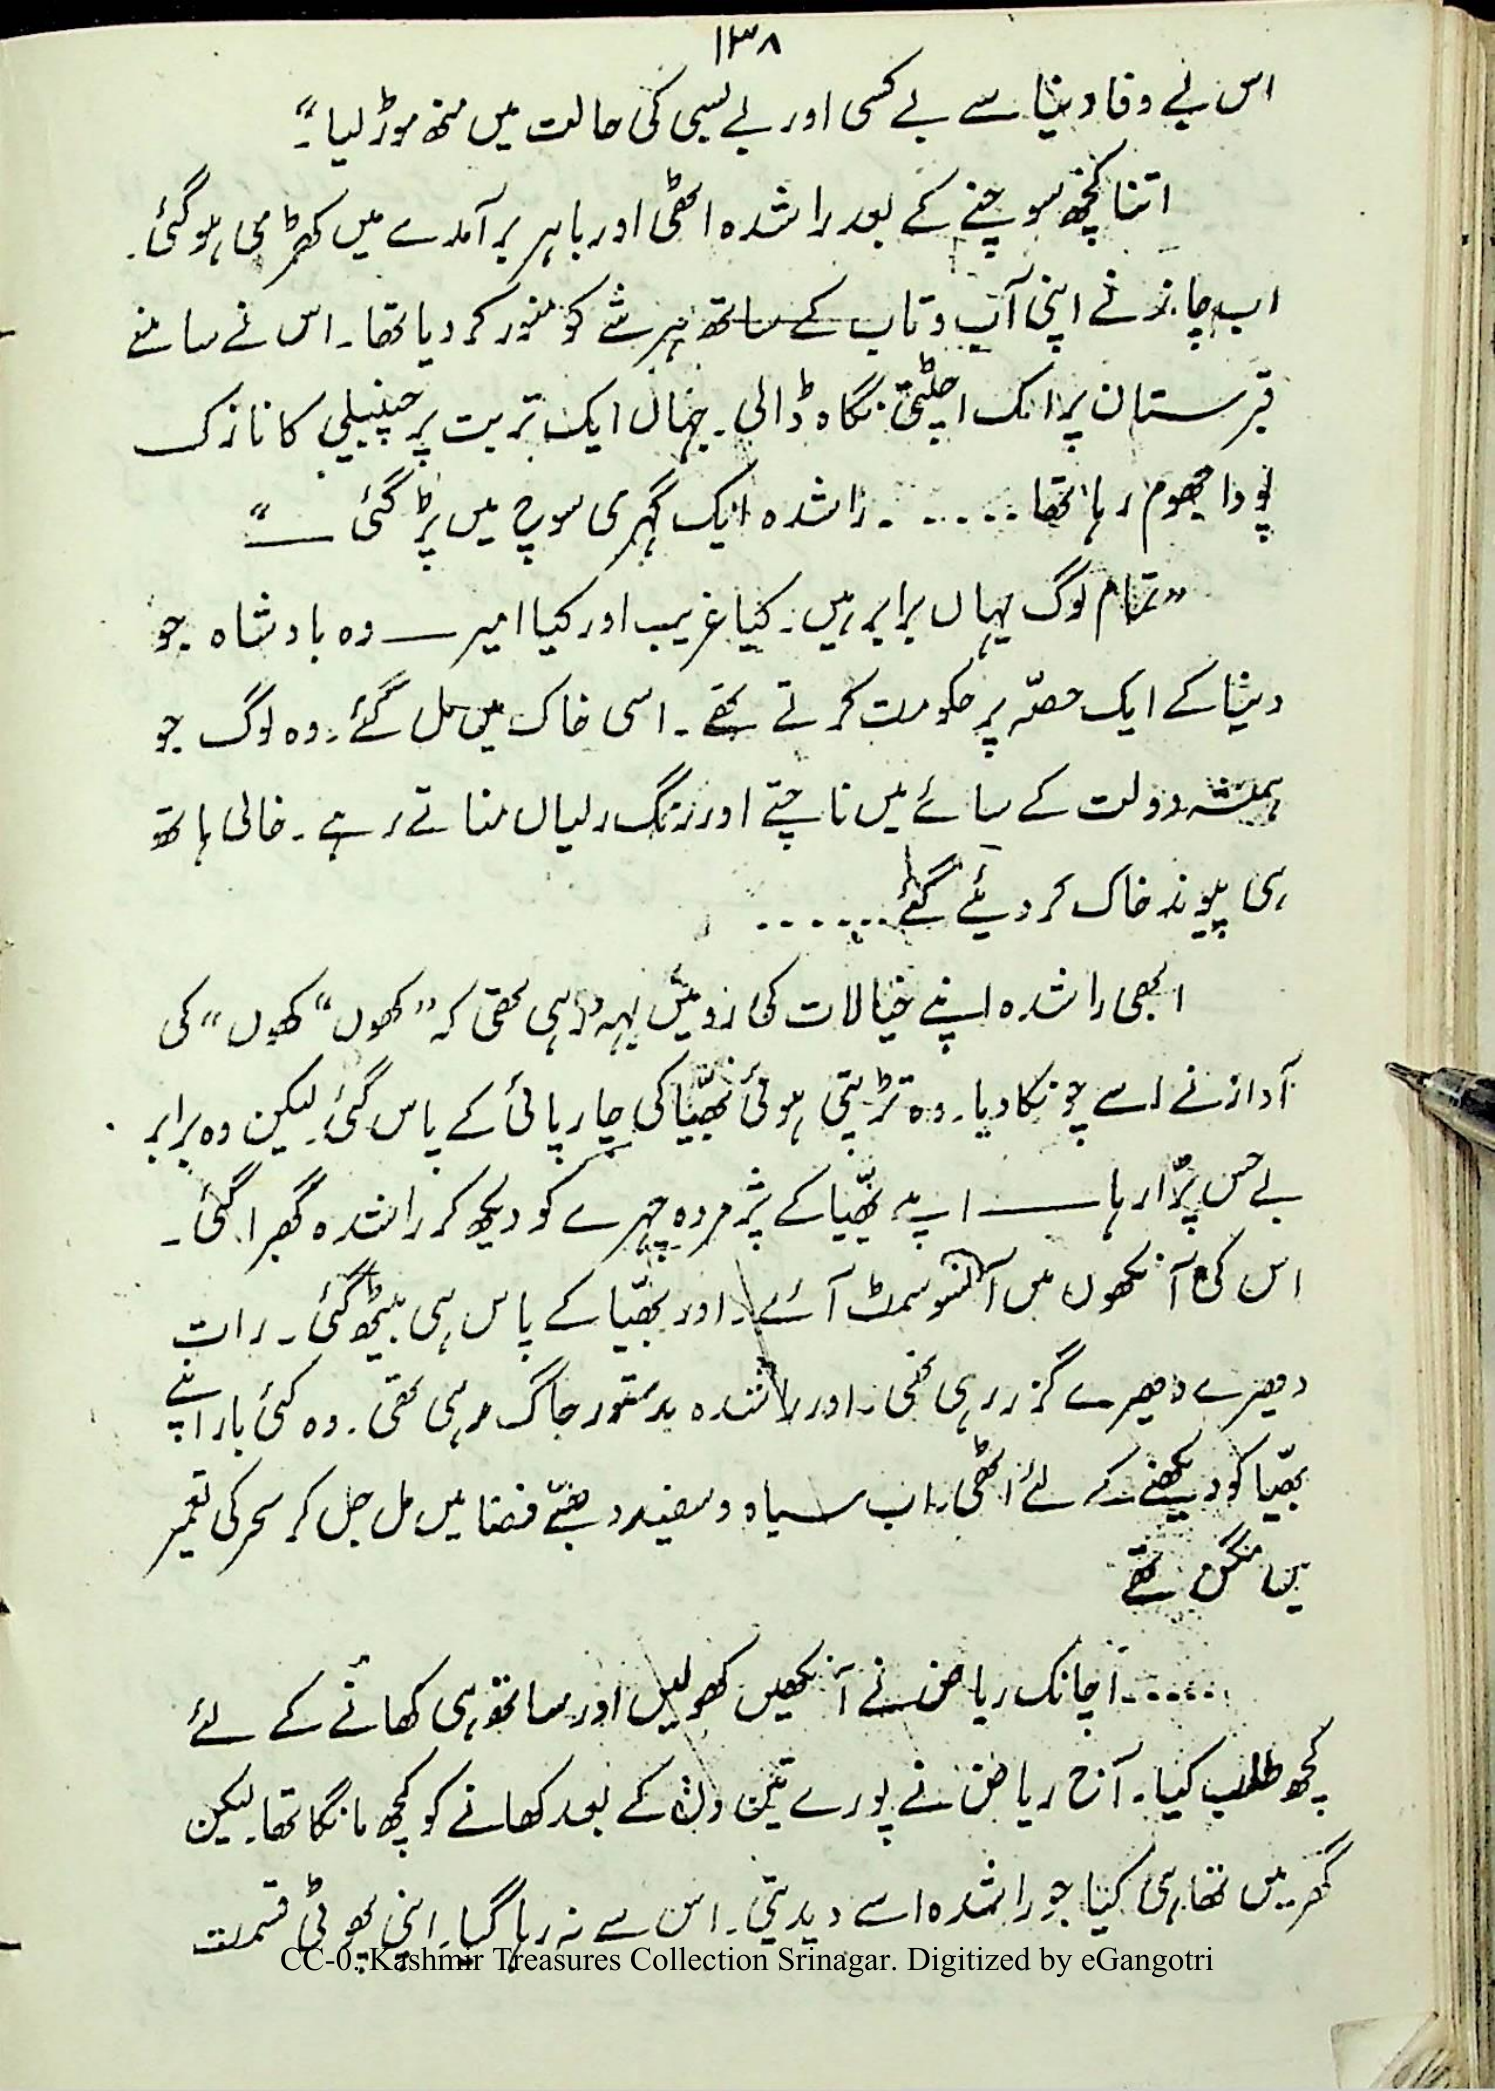 ۱۳۸
اس بے وفا دنیا سے بے کسی اور بے بسی کی حالت میں منھ موڑ لیا۔“
اتنا کچھ سوچنے کے بعد راشدہ اٹھی اور باہر برآمدے میں کھڑی ہو گئی۔
اب چاند نے اپنی آب و تاب کے ساتھ ہر شے کو منور کر دیا تھا۔ اس نے سامنے
قبرستان پر ایک اچٹتی نگاہ ڈالی۔ جہاں ایک تربت پر چنبیلی کا نازک
پودا جھوم رہا تھا ...... راشدہ ایک گہری سوچ میں پڑ گئی ــــ“
”تمام لوگ یہاں برابر ہیں۔ کیا غریب اور کیا امیر ــــ وہ بادشاہ جو
دنیا کے ایک حصّہ پر حکومت کرتے تھے۔ اسی خاک میں مل گئے۔ وہ لوگ جو
ہمیشہ دولت کے سائے میں ناچتے اور رنگ رلیاں مناتے رہے۔ خالی ہاتھ
ہی پیوند خاک کر دیئے گئے ......
ابھی راشدہ اپنے خیالات کی رو میں بہہ رہی تھی کہ ”کھوں“ کھوں“ کی
آواز نے اسے چونکا دیا۔ وہ تڑپتی ہوئی بھیّا کی چارپائی کے پاس گئی۔ لیکن وہ برابر
بے حس پڑا رہا ــــ اپنے بھیّا کے پژمردہ چہرے کو دیکھ کر راشدہ گھبرا گئی۔
اس کی آنکھوں میں آنسو سمٹ آئے۔ اور بھیّا کے پاس ہی بیٹھ گئی۔ رات
دھیرے دھیرے گزر رہی تھی۔ اور راشدہ بدستور جاگ رہی تھی۔ وہ کئی بار اپنے
بھیّا کو دیکھنے کے لئے اٹھی۔ اب سیاہ و سفید دھبّے فضا میں مل جل کر سحر کی تعمیر
میں مگن تھے
...... اچانک ریاض نے آنکھیں کھولیں اور ساتھ ہی کھانے کے لئے
کچھ طلب کیا۔ آج ریاض نے پورے تین دن کے بعد کھانے کو کچھ مانگا تھا۔ لیکن
گھر میں تھا ہی کیا جو راشدہ اسے دیدیتی۔ اس سے نہ رہا گیا۔ اپنی پھوٹی قسمت
CC-0. Kashmir Treasures Collection Srinagar. Digitized by eGangotri